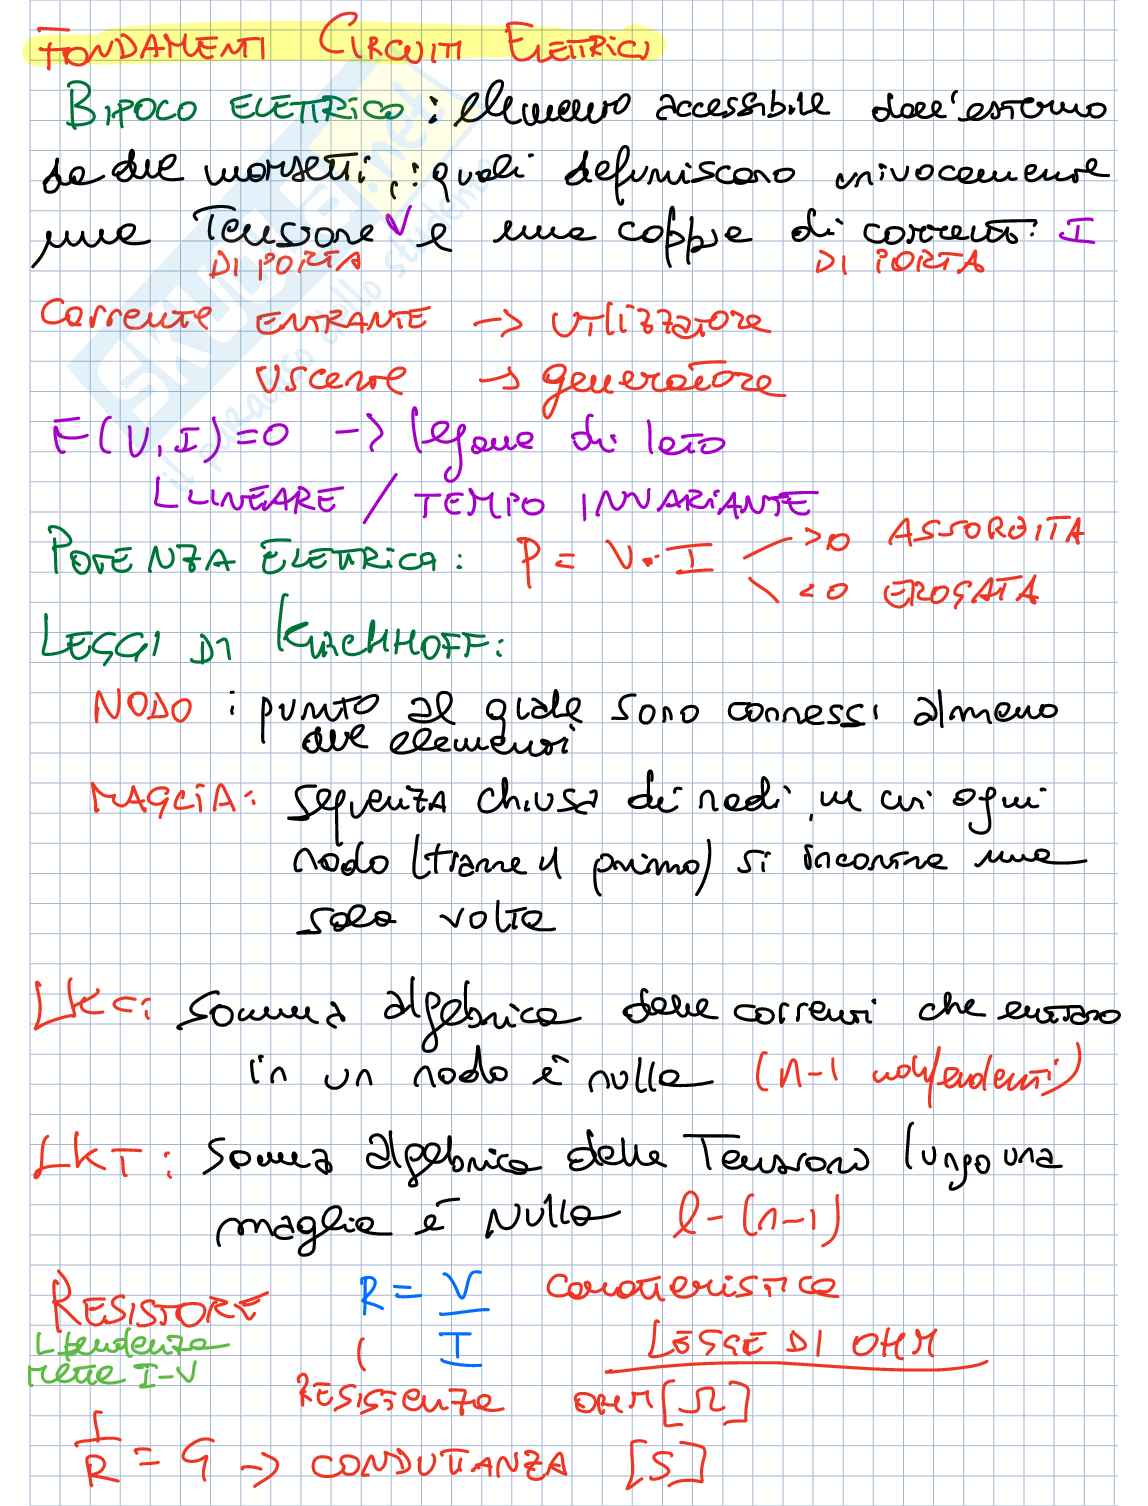 FONDAMENTI CIRCUITI ELETTRICI
BIPOLO ELETTRICO : elemento accessibile dall'esterno
da due morsetti, i quali definiscono univocamente
una Tensione V e una coppia di correnti I
DI PORTA DI PORTA
Corrente ENTRANTE -> UTILIZZATORE
USCENTE -> generatore
F(V, I) = 0 -> legame di lato
L LINEARE / TEMPO INVARIANTE
POTENZA ELETTRICA : P = V · I >0 ASSORBITA
<0 EROGATA
LEGGI DI KIRCHHOFF :
NODO : punto al quale sono connessi almeno
due elementi
MAGLIA : sequenza chiusa di nodi in cui ogni
nodo (tranne il primo) si incontra una
sola volta
LKC : Somma algebrica delle correnti che entrano
in un nodo è nulla (n-1 indipendenti)
LKT : Somma algebrica delle Tensioni lungo una
maglia è nulla l-(n-1)
RESISTORE R = V / I caratteristica
L pendenza
retta I-V
LEGGE DI OHM
RESISTENZA OHM [Ω]
1/R = G -> CONDUTTANZA [S]
skuola.net
il paradiso dello studente